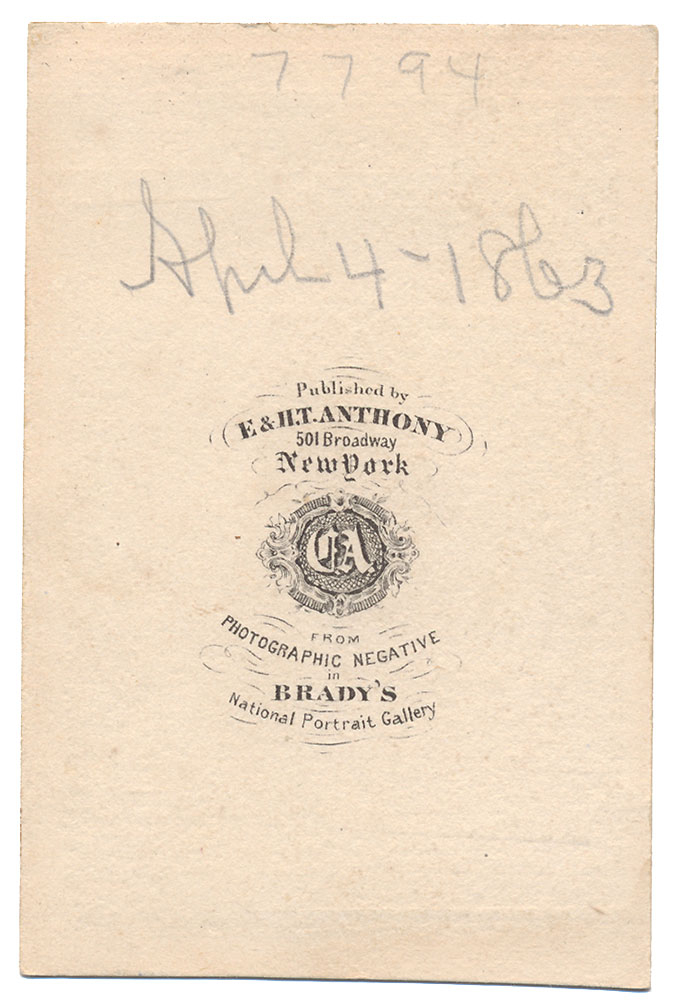 7 7 94
April 4 - 1863
Published by
E & H.T. ANTHONY
501 Broadway
New York
FROM
PHOTOGRAPHIC NEGATIVE
in
BRADY'S
National Portrait Gallery